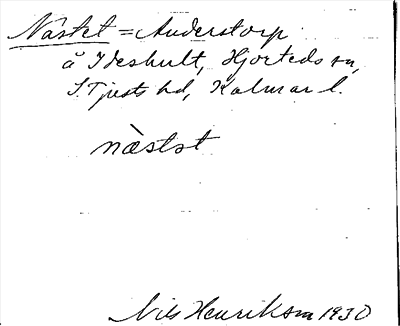 Nästet = Anderstorp
å Ideshult, Hjorteds sn,
S. Tjusts hd, Kalmar l.
næ̀stət
Nils Henriksson 1930